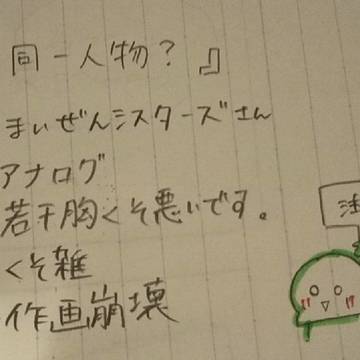 同一人物？』
まいぜんシスターズさん
アナログ
若干胸くそ悪いです。
くそ雑
作画崩壊